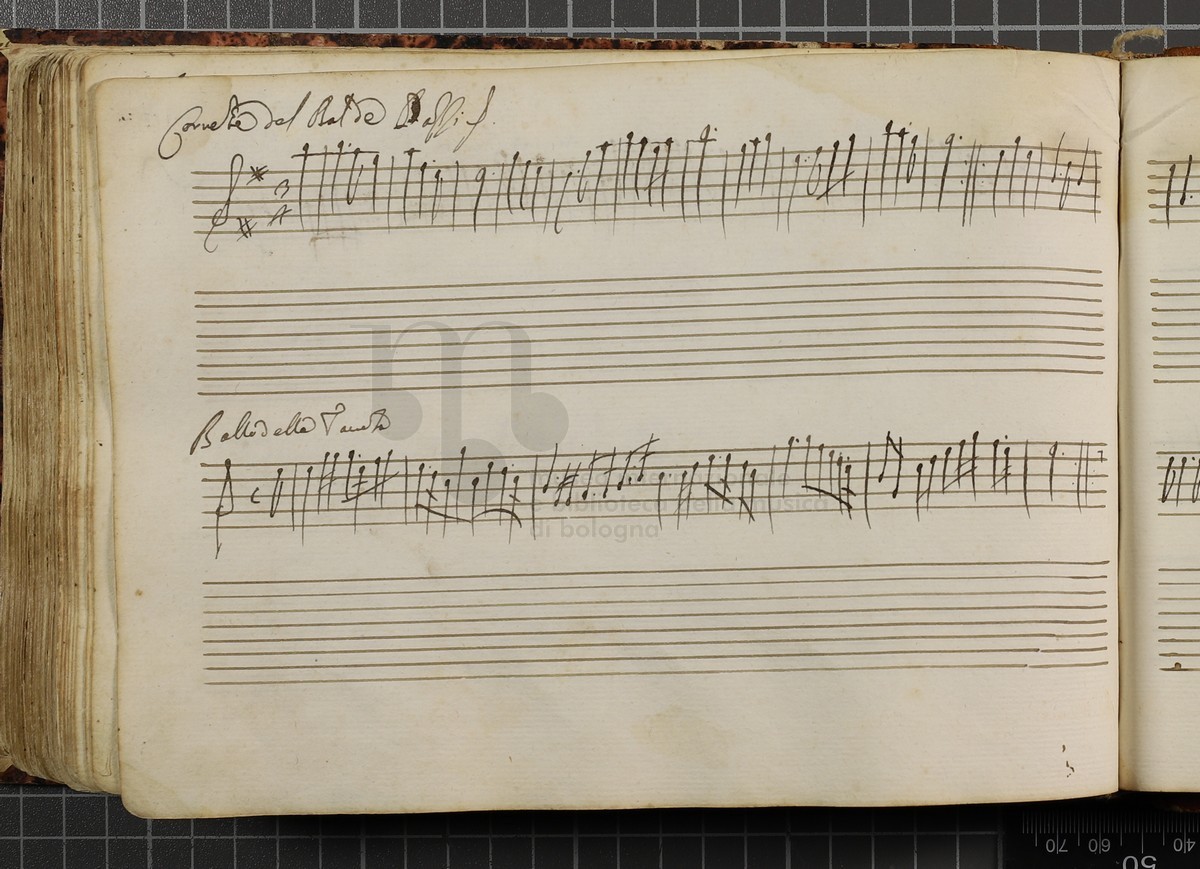 Corrente del Bal de Bassi
Ballo della
museo internazionale
e biblioteca della musica
di bologna
70 60 40
50